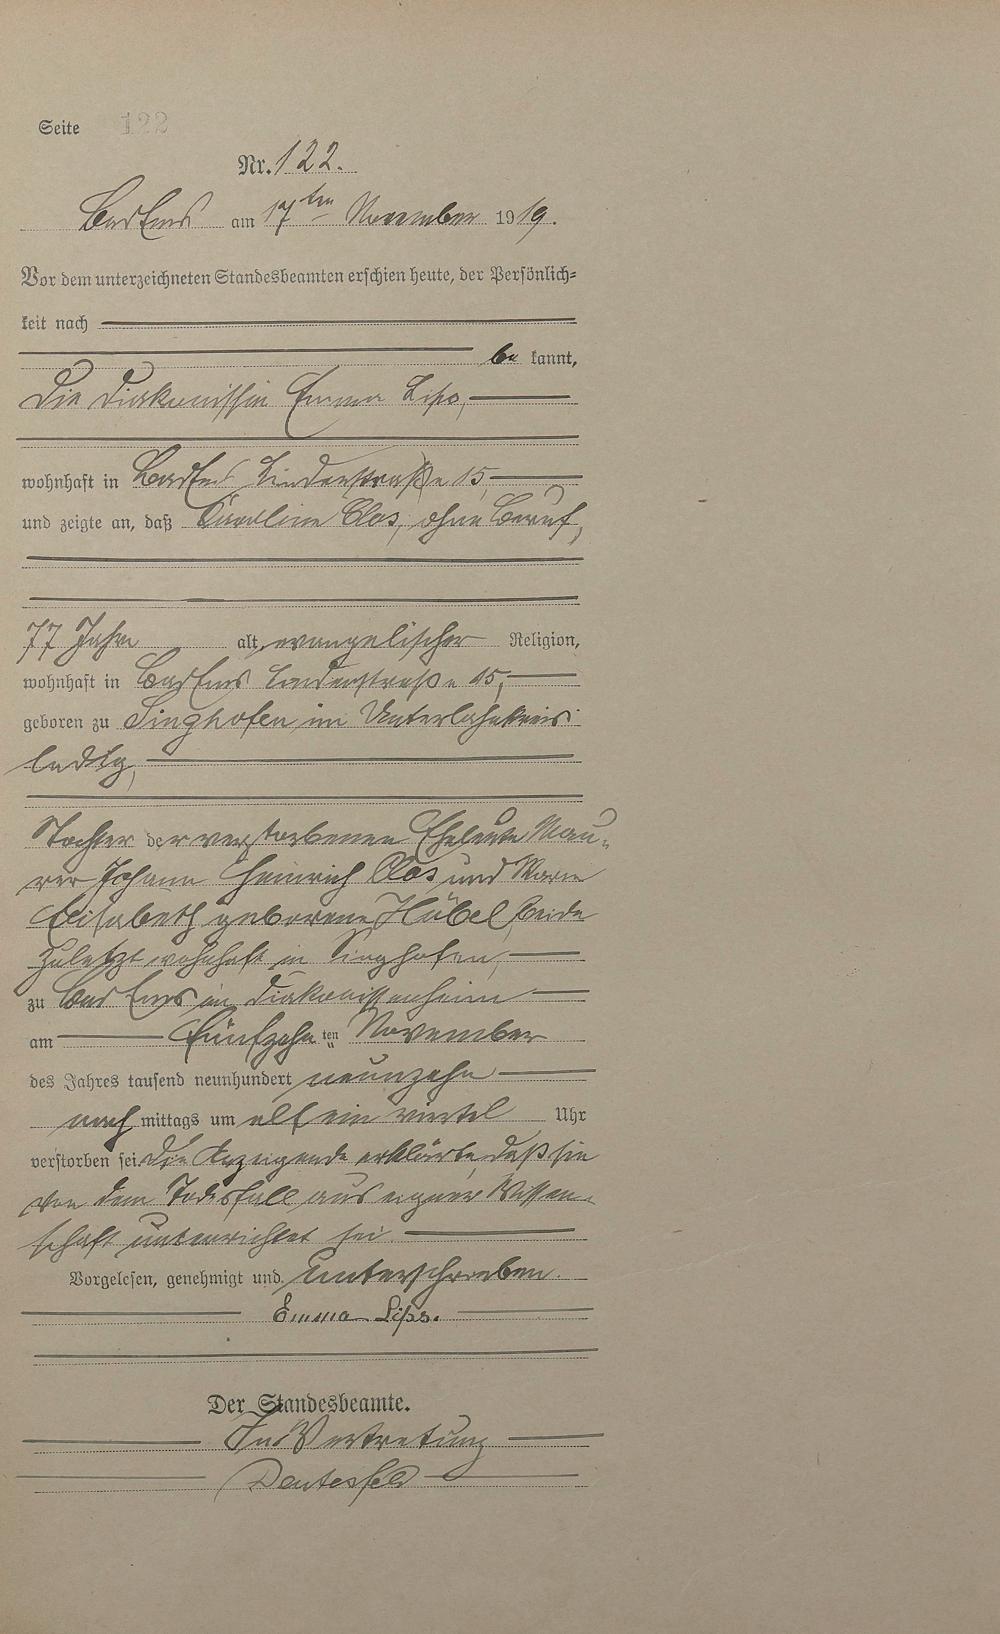 Seite 122
Nr. 122.
Bad Ems am 17ten November 1919.
Vor dem unterzeichneten Standesbeamten erschien heute, der Persönlich-
keit nach
be kannt,
Die Diakonissin Emma Lips,
wohnhaft in Bad Ems Lindenstraße 15,
und zeigte an, daß Karoline Clos, ohne Beruf,
77 Jahre alt, evangelischer Religion,
wohnhaft in Bad Ems Lindenstraße 15,
geboren zu Singhofen im Unterlahnkreis
ledig,
Tochter der verstorbenen Eheleute Mau-
rer Johann Heinrich Clos und Marie
Elisabeth geborene Hübel, beide
zuletzt wohnhaft in Singhofen,
zu Bad Ems im Diakonissenheim
am fünfzehnten November
des Jahres tausend neunhundert neunzehn
nach mittags um elf ein viertel Uhr
verstorben sei. Die Anzeigende erklärte, daß sie
von dem Todesfall aus eigner Wissen-
schaft unterrichtet sei.
Vorgelesen, genehmigt und unterschrieben.
Emma Lips.
Der Standesbeamte.
In Vertretung